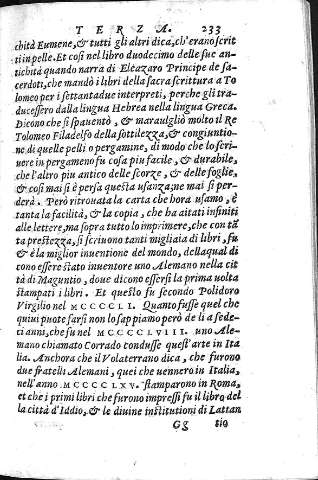 TERZA. 233
chità Eumene, & tutti gli altri dica, ch'erano scrit
ti in pelle. Et così nel libro duodecimo delle sue an-
tichità quando narra di Eleazaro Principe de sa-
cerdoti, che mandò i libri della sacra scrittura a To
lomeo per i settantadue interpreti, perche gli tra-
ducessero dalla lingua Hebrea nella lingua Greca.
Dicono che si spauentò, & marauigliò molto il Re
Tolomeo Filadelfo della sottilezza, & congiuntio-
ne di quelle pelli o pergamine, di modo che lo scri-
uere in pergameno fu cosa piu facile, & durabile,
che l'altro piu antico delle scorze, & delle foglie,
& così mai si è persa questa usanza; ne mai si per-
derà. Però ritrouata la carta che hora usamo, è
tanta la facilità, & la copia, che ha aitati infiniti
alle lettere, ma sopra tutto lo imprimere, che con tã
ta prestezza, si scriuono tanti migliaia di libri, fu
& è la miglior inuentione del mondo, della qual di
cono essere stato inuentore uno Alemano nella cit
tà di Maguntio, doue dicono essersi la prima volta
stampati i libri. Et questo fu secondo Polidoro
Virgilio nel MCCCCLI. Quanto fusse quel che
quiui puote farsi non lo sappiamo però de li a sede-
ci anni, che fu nel MCCCCLVIII. uno Ale-
mano chiamato Corrado condusse quest'arte in Ita
lia. Anchora che il Volaterrano dica, che furono
due fratelli Alemani, quei che uennero in Italia,
nell'anno MCCCCLXV. stamparono in Roma,
et che i primi libri che furono impressi fu il libro del
la città d'Iddio, & le diuine institutioni di Lattan
Gg tio